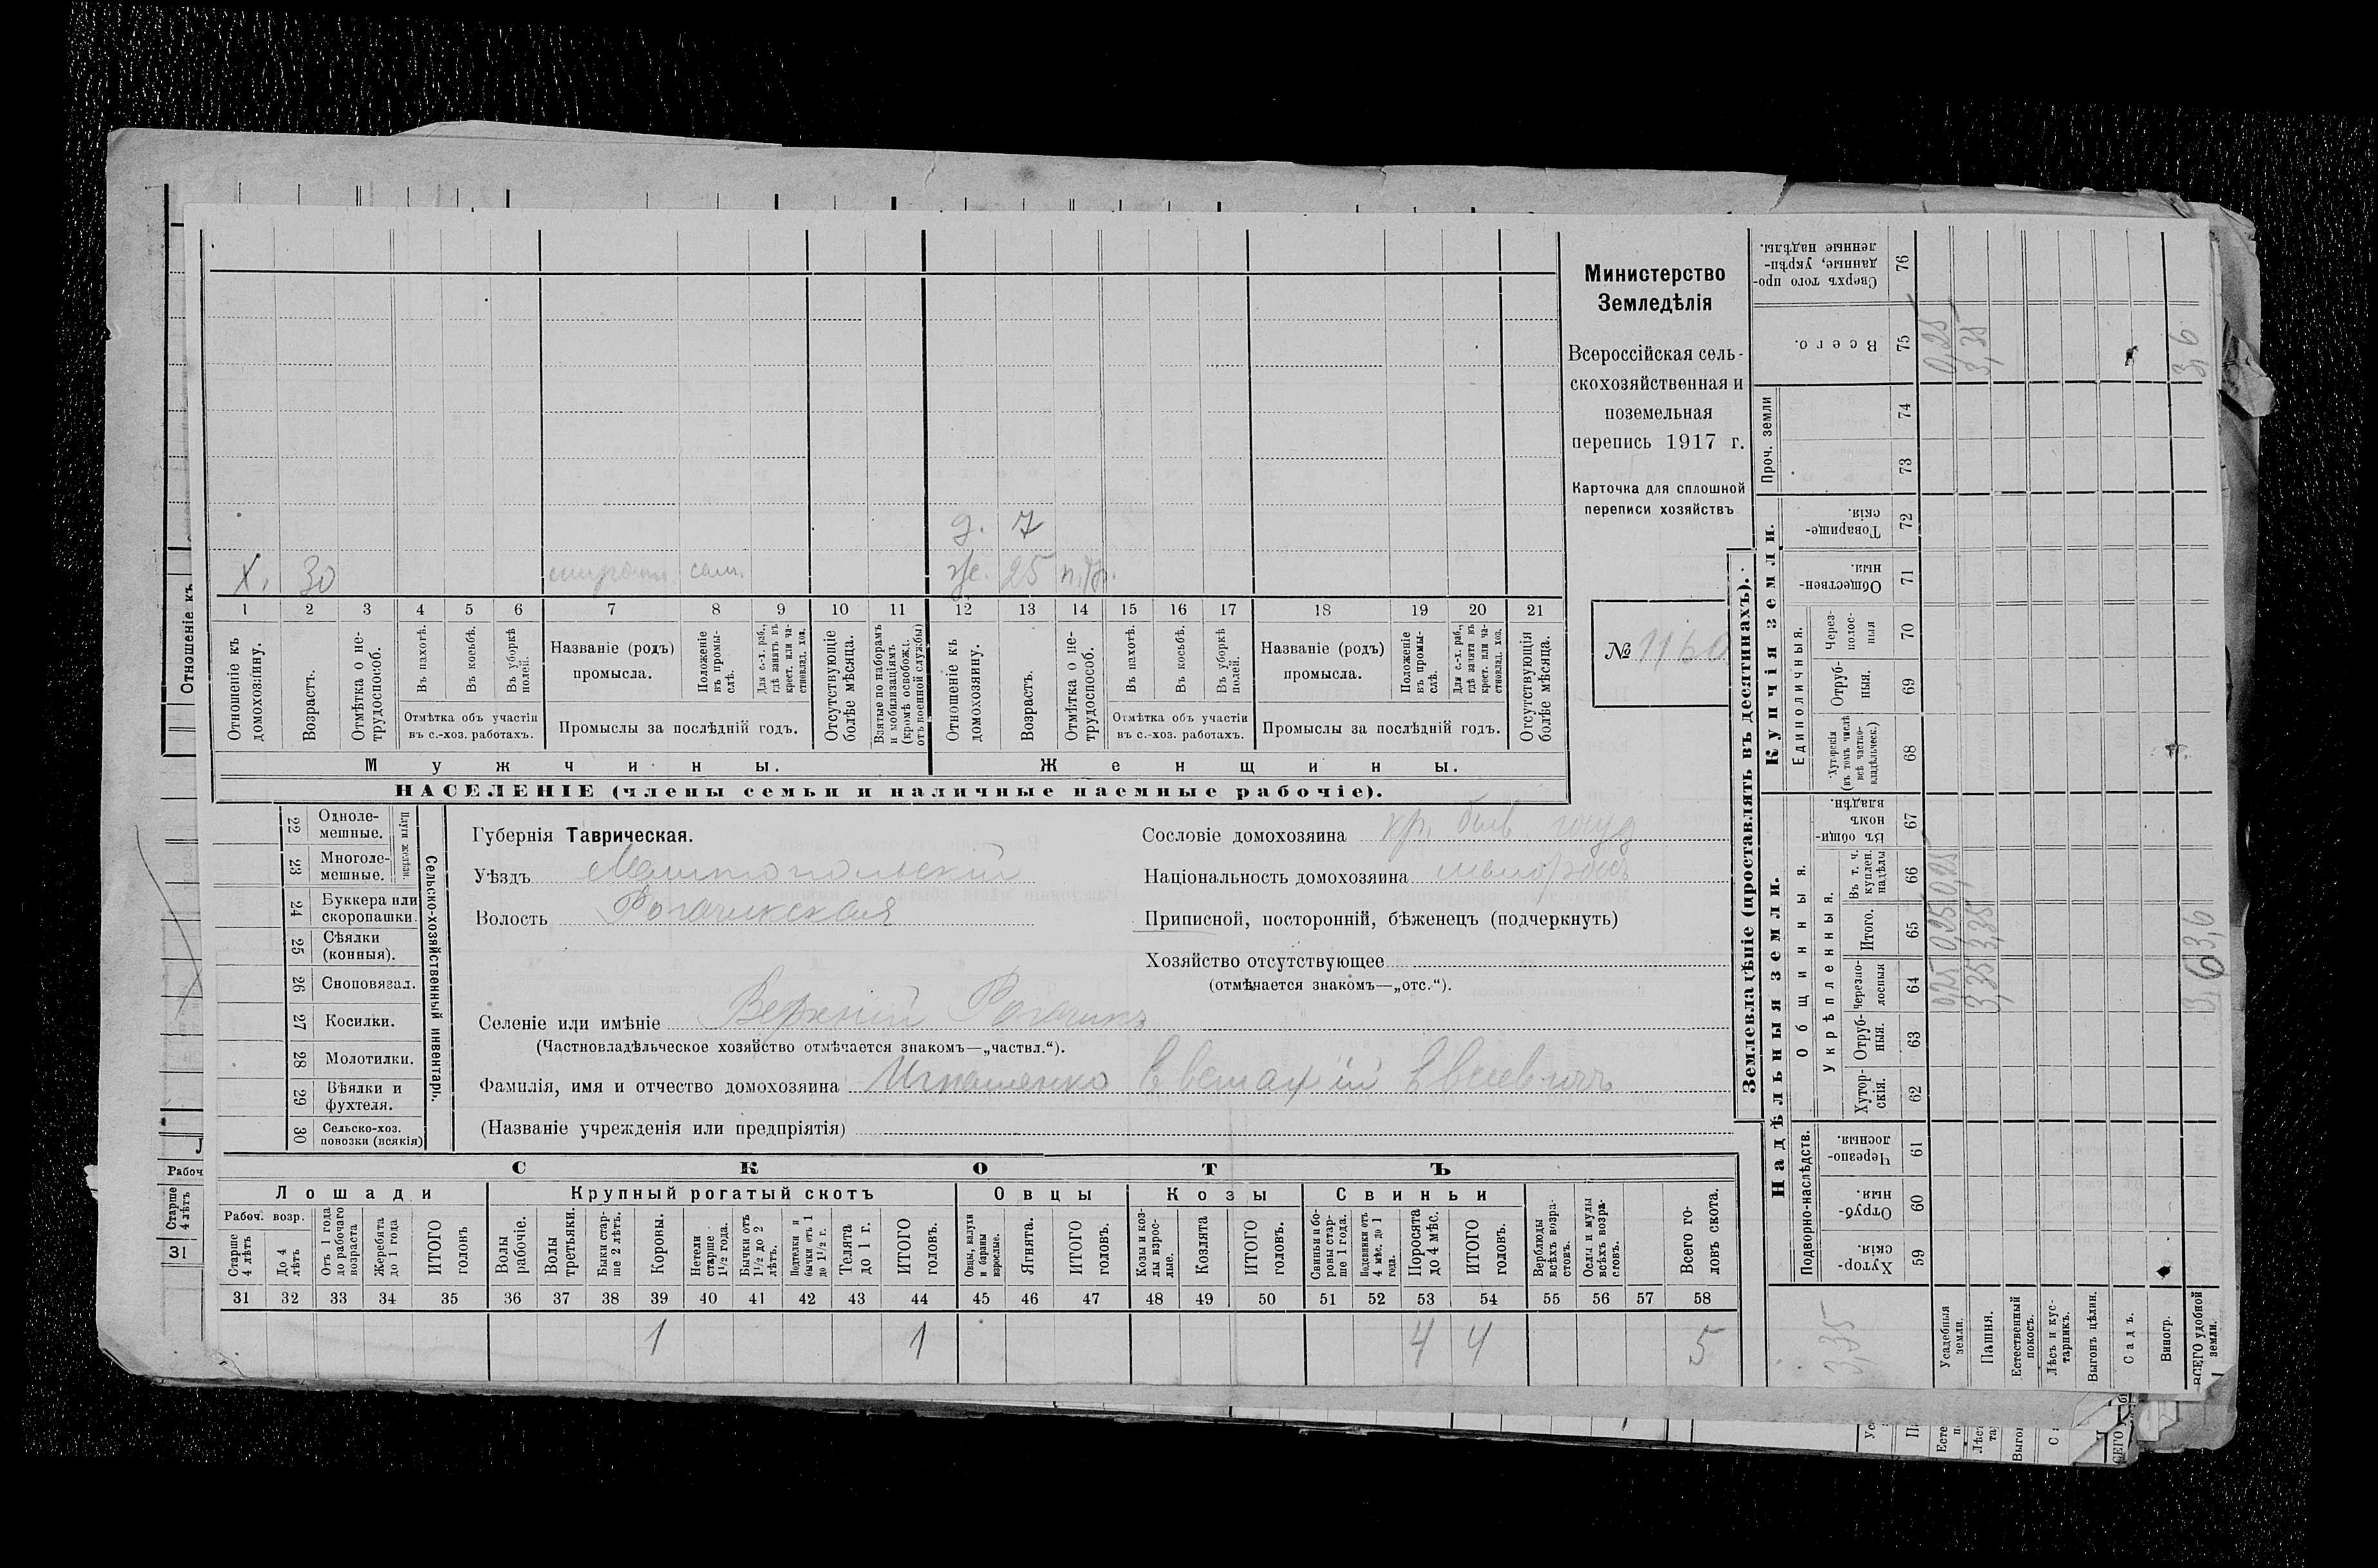 Министерство
Земледѣлія
Всероссійская сель-
скохозяйственная и
поземельная
перепись 1917 г.
Карточка для сплошной
переписи хозяйствъ
№
д. 7
Х. 30 сам. же. 25
1 2 3 4 5 6 7 8 9 10 11 12 13 14 15 16 17 18 19 20 21
Отношеніе къ домохозяину.
Возрастъ.
Отмѣтка о не-трудоспособ.
Въ пахотѣ.
Въ косьбѣ.
Въ уборкѣ полей.
Отмѣтка объ участіи
въ с.-хоз. работахъ.
Названіе (родъ)
промысла.
Положеніе въ промы-слѣ.
Для с.-х. раб., гдѣ занятъ въ крест. или ча-стновлад. хоз.
Промыслы за послѣдній годъ.
Отсутствующіе болѣе мѣсяца.
Взятые по наборамъ и мобилизаціямъ (кромѣ освобожд. отъ военной службы)
Отношеніе къ домохозяину.
Возрастъ.
Отмѣтка о не-трудоспособ.
Въ пахотѣ.
Въ косьбѣ.
Въ уборкѣ полей.
Отмѣтка объ участіи
въ с.-хоз. работахъ.
Названіе (родъ)
промысла.
Положеніе въ промы-слѣ.
Для с.-х. раб., гдѣ занята въ крест. или ча-стновлад. хоз.
Промыслы за послѣдній годъ.
Отсутствующія болѣе мѣсяца.
Мужчины. Женщины.
НАСЕЛЕНІЕ (члены семьи и наличные наемные рабочіе).
22 Одноле-мешные.
23 Многоле-мешные.
Плуги желѣзн.
24 Буккера или скоропашки.
25 Сѣялки (конныя).
26 Сноповязал.
27 Косилки.
28 Молотилки.
29 Вѣялки и фухтеля.
30 Сельско-хоз. повозки (всякія)
Сельско-хозяйственный инвентарь.
Губернія Таврическая.
Уѣздъ Мелитопольскій
Волость Рогачикская
Сословіе домохозяина кр. быв.
Національность домохозяина малороссъ
Приписной, посторонній, бѣженецъ (подчеркнуть)
Хозяйство отсутствующее
(отмѣчается знакомъ—„отс.“).
Селеніе или имѣніе Верхній Рогачикъ
(Частновладѣльческое хозяйство отмѣчается знакомъ—„частвл.“).
Фамилія, имя и отчество домохозяина Игнатенко Евстафій Евсеевичъ
(Названіе учрежденія или предпріятія)
СКОТЪ
Лошади Крупный рогатый скотъ Овцы Козы Свиньи
Рабоч. возр.
Старше 4 лѣтъ
До 4 лѣтъ
Отъ 1 года до рабочаго возраста
Жеребята до 1 года
ИТОГО головъ
Волы рабочіе.
Волы третьяки.
Быки стар-ше 2 лѣтъ.
Коровы.
Нетели старше 1½ года.
Бычки отъ 1½ до 2 лѣтъ.
Подтелки и бычки отъ 1 до 1½ г.
Телята до 1 г.
ИТОГО головъ.
Овцы, валухи и бараны взрослые.
Ягнята.
ИТОГО головъ.
Козы и коз-лы взрос-лые.
Козлята
ИТОГО головъ.
Свиньи и бо-ровы стар-ше 1 года.
Подсвинки отъ 4 мѣс. до 1 года.
Поросята до 4 мѣс.
ИТОГО головъ.
Верблюды всѣхъ возра-стовъ.
Ослы и мулы всѣхъ возра-стовъ.
Всего го-ловъ скота.
31 32 33 34 35 36 37 38 39 40 41 42 43 44 45 46 47 48 49 50 51 52 53 54 55 56 57 58
1 1 4 4 5
Землевладѣніе (проставлять въ десятинахъ).
Надѣльныя земли. Купчія земли.
Подворно-наслѣдств.
Общинныя.
Укрѣпленныя.
Единоличныя.
Проч. земли
Хутор-скія. 59
Отруб-ныя. 60
Черезпо-лосныя. 61
Хутор-скія. 62
Отруб-ныя. 63
Черезпо-лосныя 64
Итого. 65
Въ т. ч. куплен. надѣлы 66
Въ общи-номъ владѣн. 67
Хуторскія (въ томъ числѣ всѣ частно-владѣльческ.) 68
Отруб-ныя. 69
Через-полос-ныя 70
Обществен-ныя. 71
Товарище-скія. 72
73
74
Всего. 75
Сверхъ того про-данные, укрѣп-ленные надѣлы. 76
3,35
Усадебныя земли. 0,25 0,25 0,25 0,25
Пашня. 3,35 3,35 3,35
Естественный покосъ.
Лѣсъ и кус-тарникъ.
Выгонъ цѣлин.
Садъ.
Виногр.
ВСЕГО удобной земли. 3,6 3,6 3,6
Отношеніе къ
Рабоч
Старше 4 лѣтъ
31